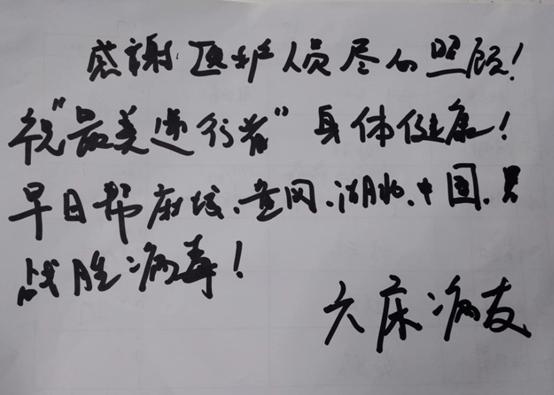 感謝医护人员尽心照顾!
祝"最美逆行者"身体健康!
早日帮麻城、黄冈、湖北、中国、
战胜病毒!
六床病友